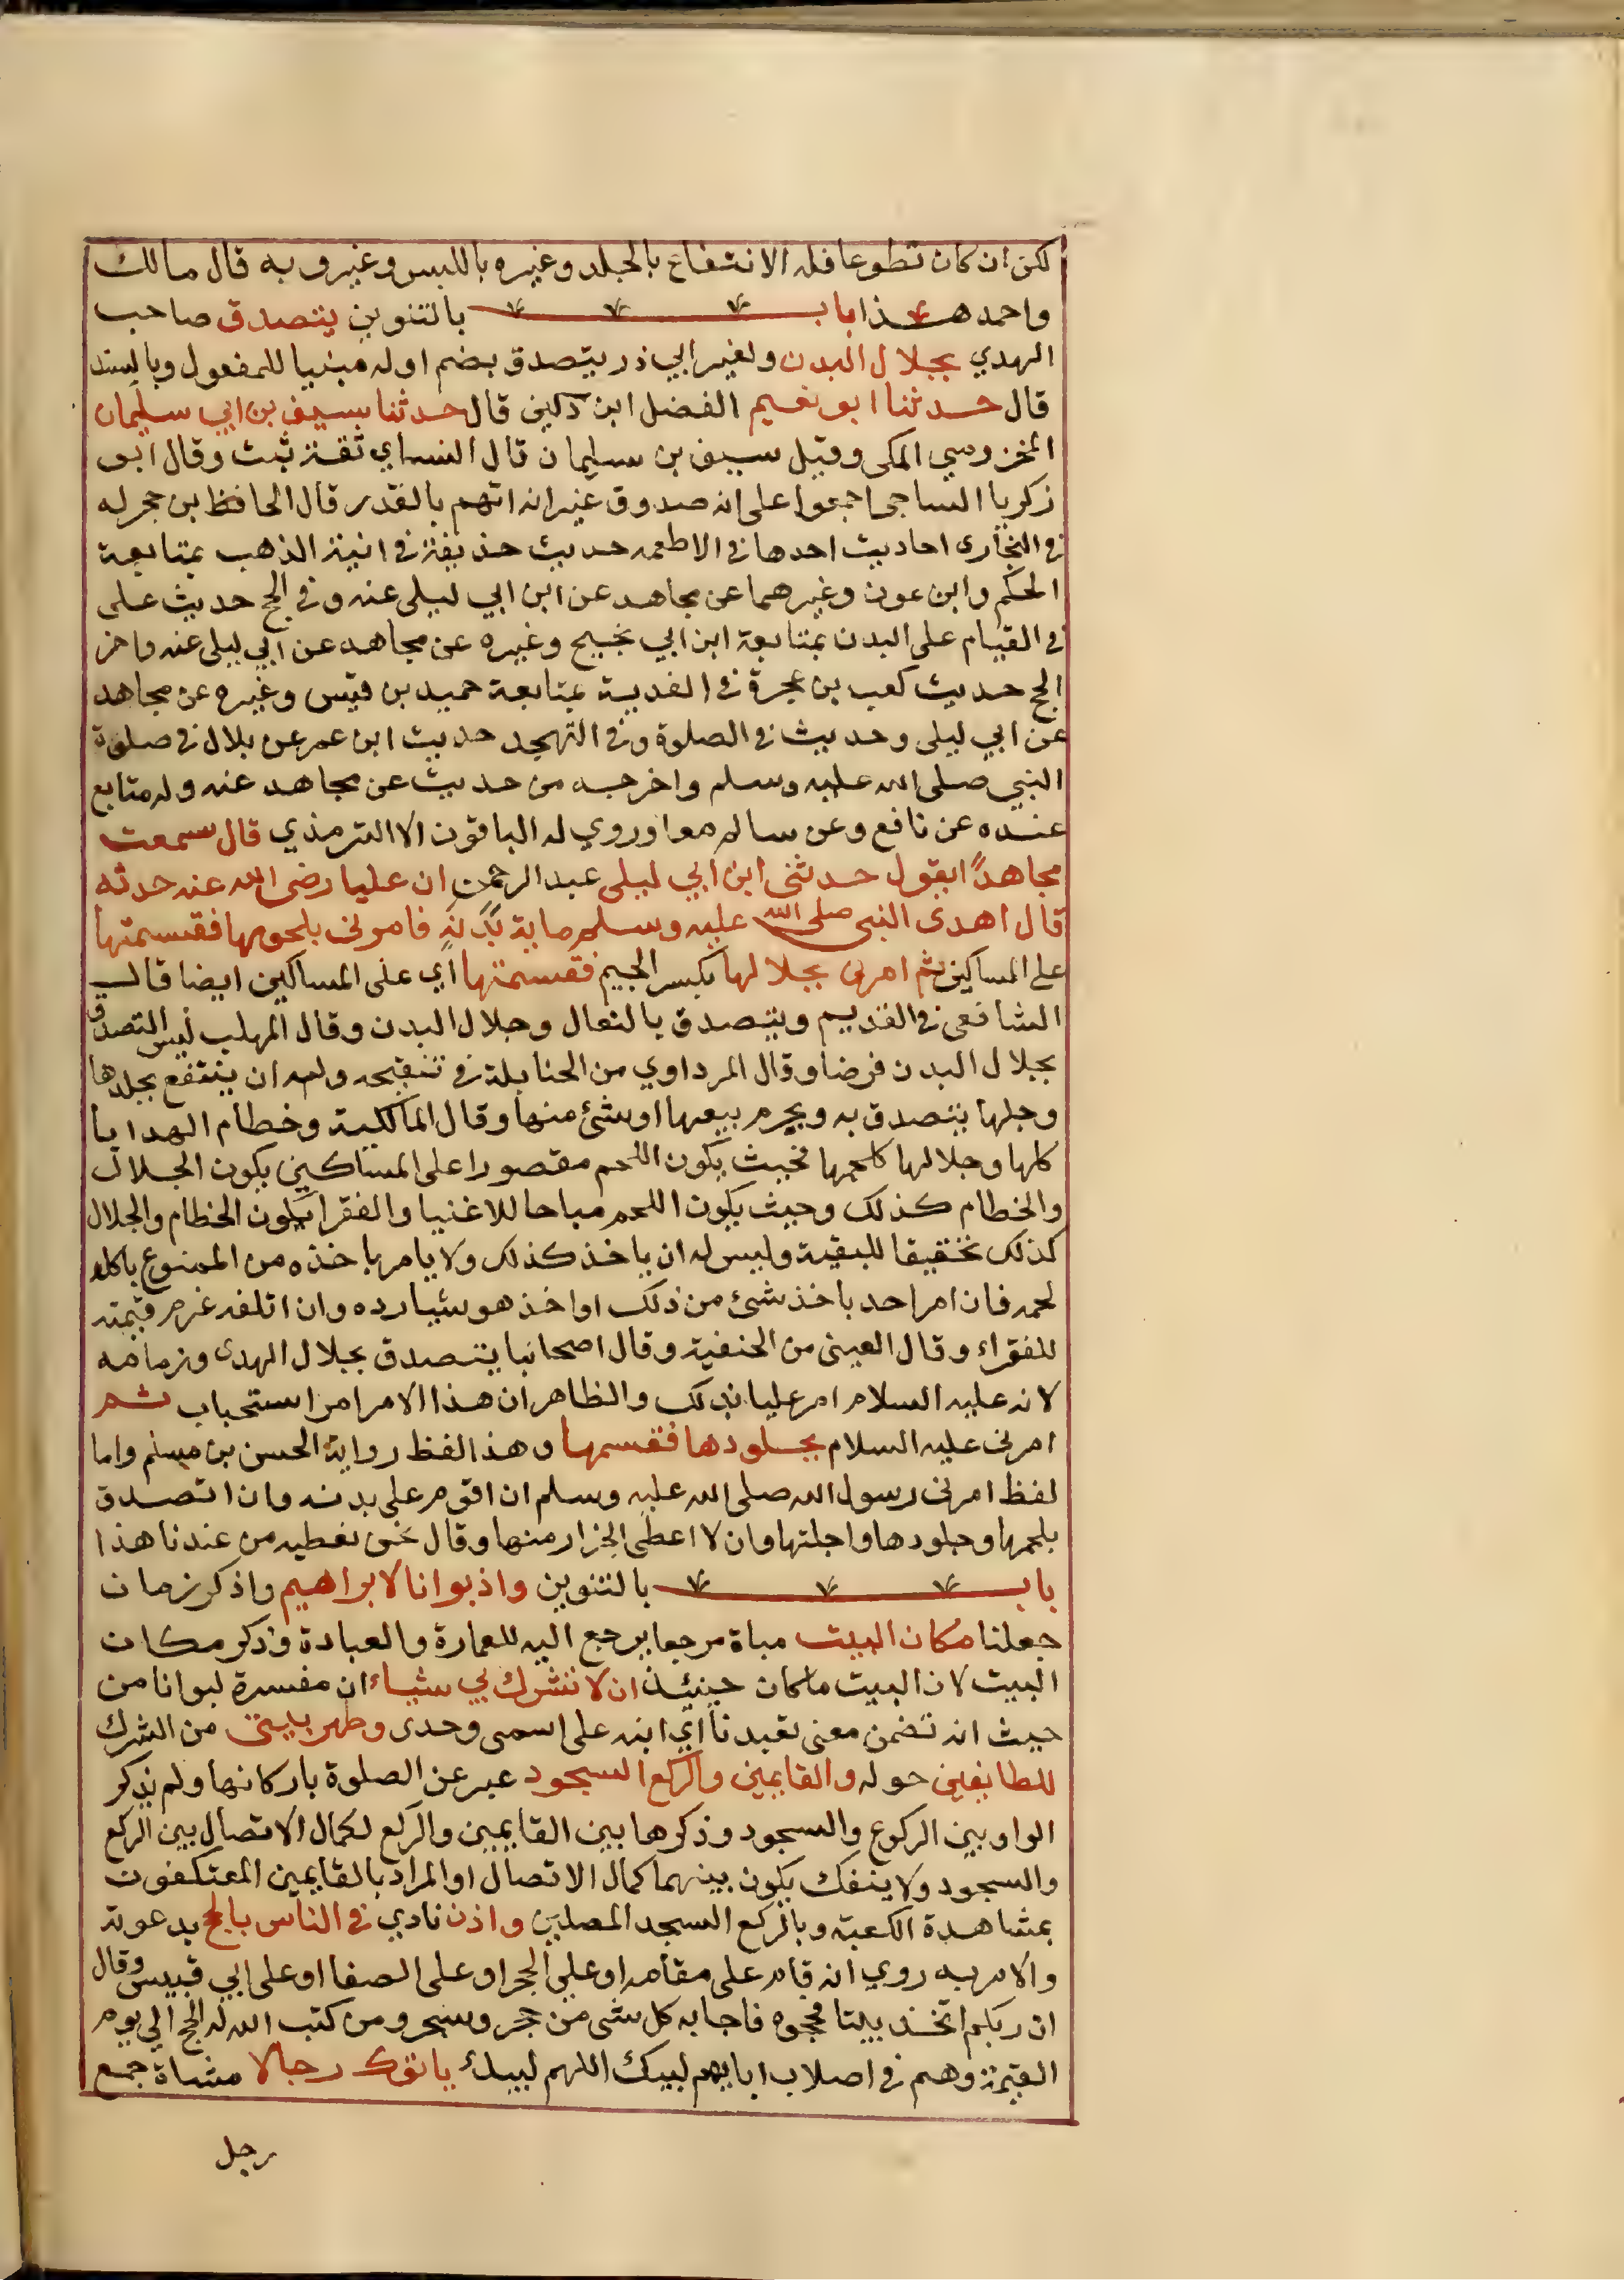 لكن ان كان تطوعا فله الانتفاع بالجلد وغيره باللبس وغيره وبه قال مالك
واحمد هذا باب بالتنوين يتصدق صاحب
الهدي بجلال البدن ولغير ابي ذر يتصدق بضم اوله مبنيا للمفعول وبالسند
قال حدثنا ابو نعيم الفضل ابن دكين قال حدثنا سيف بن ابي سليمان
المخزومي المكي وقيل سيف بن سليمان قال النساي ثقة ثبت وقال ابو
زكريا الساجي اجمعوا على انه صدوق غير انه اتهم بالقدر قال الحافظ بن حجر له
في البخارى احاديث احدها في الاطعمه حديث حذيفة في انية الذهب بمتابعة
الحكم وابن عون وغيرهما عن مجاهد عن ابن ابي ليلى عنه وفي الحج حديث على
في القيام على البدن بمتابعة ابن ابي نجيح وغيره عن مجاهد عن ابي ليلى عنه واخر
الحج حديث كعب بن عجرة في الفدية بمتابعة حميد بن قيس وغيره عن مجاهد
عن ابي ليلى وحديث في الصلوة وفي التهجد حديث ابن عمر عن بلال في صلوة
النبي صلى الله عليه وسلم واخرجه من حديث عن مجاهد عنه وله متابع
عنده عن نافع وعن سالم معا وروي له الباقون الا الترمذي قال سمعت
مجاهداً يقول حدثنى ابن ابي ليلى عبد الرحمن ان عليا رضى الله عنه حدثه
قال اهدى النبي صلى الله عليه وسلم ماية بدنة فامرنى بلحومها فقسمتها
على المساكين ثم امرنى بجلالها بكسر الجيم فقسمتها اي على المساكين ايضا قال
الشافعى في القديم ويتصدق بالنعال وجلال البدن وقال المهلب ليس التصدق
بجلال البدن فرضا وقال المرداوي من الحنابلة في تنقيحه وله ان ينتفع بجلدها
وجلها يتصدق به ويحرم بيعها او شئ منها وقال المالكية وخطام الهدايا
كلها وجلالها كلحمها فحيث يكون اللحم مقصورا على المساكين يكون الجلال
والخطام كذلك وحيث يكون اللحم مباحا للاغنيا والفقرا يكون الخطام والجلال
كذلك تحقيقا للبقية وليس له ان ياخذ كذلك ولا يامر باخذه من الممنوع باكله
لحمه فان امر احد باخذ شئ من ذلك او اخذ هو شيا رده وان اتلفه غرم قيمته
للفقراء وقال العينى من الحنفية وقال اصحابنا يتصدق بجلال الهدى وزمامه
لانه عليه السلام امر عليا بذلك والظاهر ان هذا الامر امر استحباب ثم
امرنى عليه السلام بجلودها فقسمها وهذا لفظ رواية الحسن بن مسلم واما
لفظ امرنى رسول الله صلى الله عليه وسلم ان اقوم على بدنه وان اتصدق
بلحمها وجلودها واجلتها وان لا اعطى الجزار منها وقال نحن نعطيه من عندنا هذا
باب بالتنوين واذ بوانا لابراهيم واذكر زمان
جعلنا مكان البيت مباة مرجعا يرجع اليه للعمارة والعبادة وذكر مكان
البيت لان البيت ما كان حينئذ ان لا تشرك بي شياء ان مفسرة لبوانا من
حيث انه تضمن معنى تعبدنا اي ابنه على اسمى وحدى وطهر بيتى من الشرك
للطايفين حوله والقايمين والركع السجود عبر عن الصلوة باركانها ولم يذكر
الواو بين الركوع والسجود وذكرها بين القايمين والركع لكمال الاتصال بين الركع
والسجود ولا ينفك يكون بينهما كمال الاتصال او المراد بالقايمين المعتكفون
بمشاهدة الكعبة وبالركع السجد المصلين واذن نادي في الناس بالحج بدعوته
والامر به روي انه قام على مقامه او على الحجر او على الصفا او على ابي قبيس وقال
ان ربكم اتخذ بيتا فحجوه فاجابه كل شى من حجر وشجر ومن كتب الله له الحج الي يوم
القيمة وهم في اصلاب ابايهم لبيك اللهم لبيك ياتوك رجالا مشاة جمع
رجل